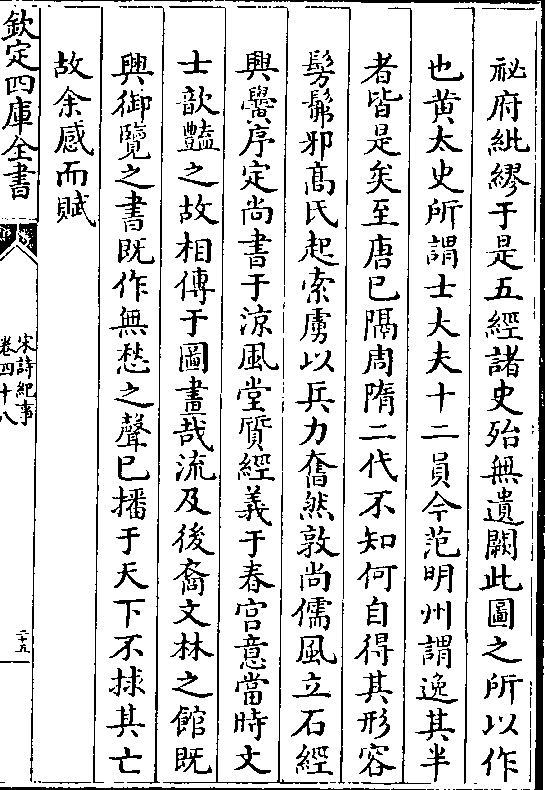 祕府紕繆于是五經諸史殆無遺闕此圖之所以作
也黄太史所謂士大夫十二員今范明州謂逸其半
者皆是矣至唐已隔周隋二代不知何自得其形容
髣髴邪髙氏起索虜以兵力奮然敦尚儒風立石經
興黌序定尚書于涼風堂質經義于春宫意當時文
士歆豔之故相傳于圖畫哉流及後裔文林之館既
興御覽之書既作無愁之聲已播于天下不捄其亡
故余感而賦
欽定四庫全書
宋詩紀事
卷四十八
二十五